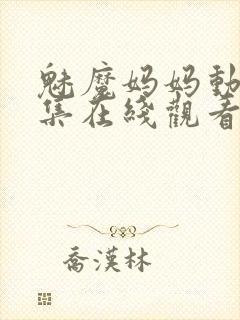 魅魔妈妈動
集在綫觀看
喬漢林